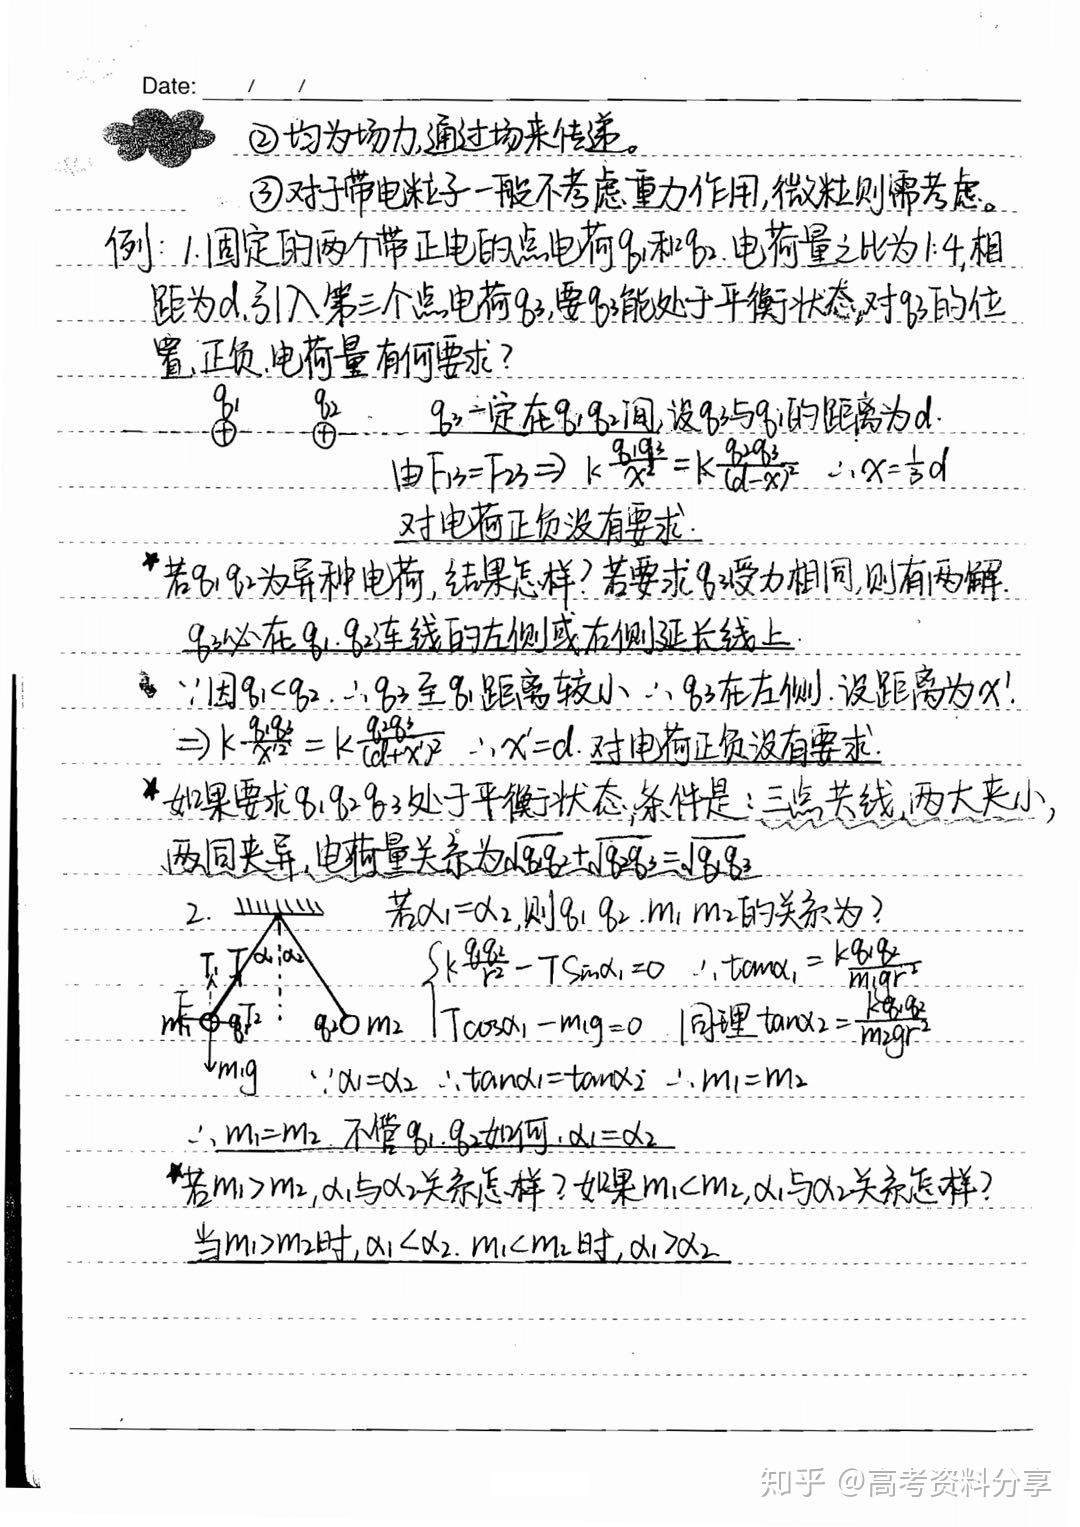 Date: / /
②均为场力,通过场来传递。
③对于带电粒子一般不考虑重力作用,微粒则需考虑。
例: 1.固定的两个带正电的点电荷q₁和q₂.电荷量之比为1:4,相
距为d,引入第三个点电荷q₃,要q₃能处于平衡状态,对q₃的位
置、正负、电荷量有何要求?
q₁ q₂ q₃一定在q₁q₂间,设q₃与q₁的距离为d.
⊕ ⊕
由F₁₃=F₂₃⇒ k q₁q₃/x² = k q₂q₃/(d-x)² ∴x=1/3 d
对电荷正负没有要求.
*若q₁q₂为异种电荷,结果怎样?若要求q₃受力相同,则有两解.
q₃必在q₁.q₂连线的左侧或右侧延长线上.
∵因q₁<q₂.∴q₃至q₁距离较小∴q₃在左侧.设距离为x'.
⇒ k q₁q₃/x'² = k q₂q₃/(d+x')² ∴x'=d.对电荷正负没有要求.
*如果要求q₁q₂q₃处于平衡状态,条件是:三点共线,两大夹小,
两同夹异,电荷量关系为√q₁q₂±√q₂q₃=√q₁q₃
2. 若α₁=α₂,则q₁q₂.m₁m₂的关系为?
α₁ α₂ T₁ T
{k q₁q₂/r² - Tsinα₁=0 ∴tanα₁= kq₁q₂/m₁gr²
F m₁ q₁ T₂ q₂ m₂
Tcosα₁-m₁g=0 同理tanα₂= kq₁q₂/m₂gr²
m₁g ∵α₁=α₂ ∴tanα₁=tanα₂ ∴m₁=m₂
∴m₁=m₂.不管q₁.q₂如何,α₁=α₂
*若m₁>m₂,α₁与α₂关系怎样?如果m₁<m₂,α₁与α₂关系怎样?
当m₁>m₂时,α₁<α₂.m₁<m₂时,α₁>α₂
知乎 @高考资料分享